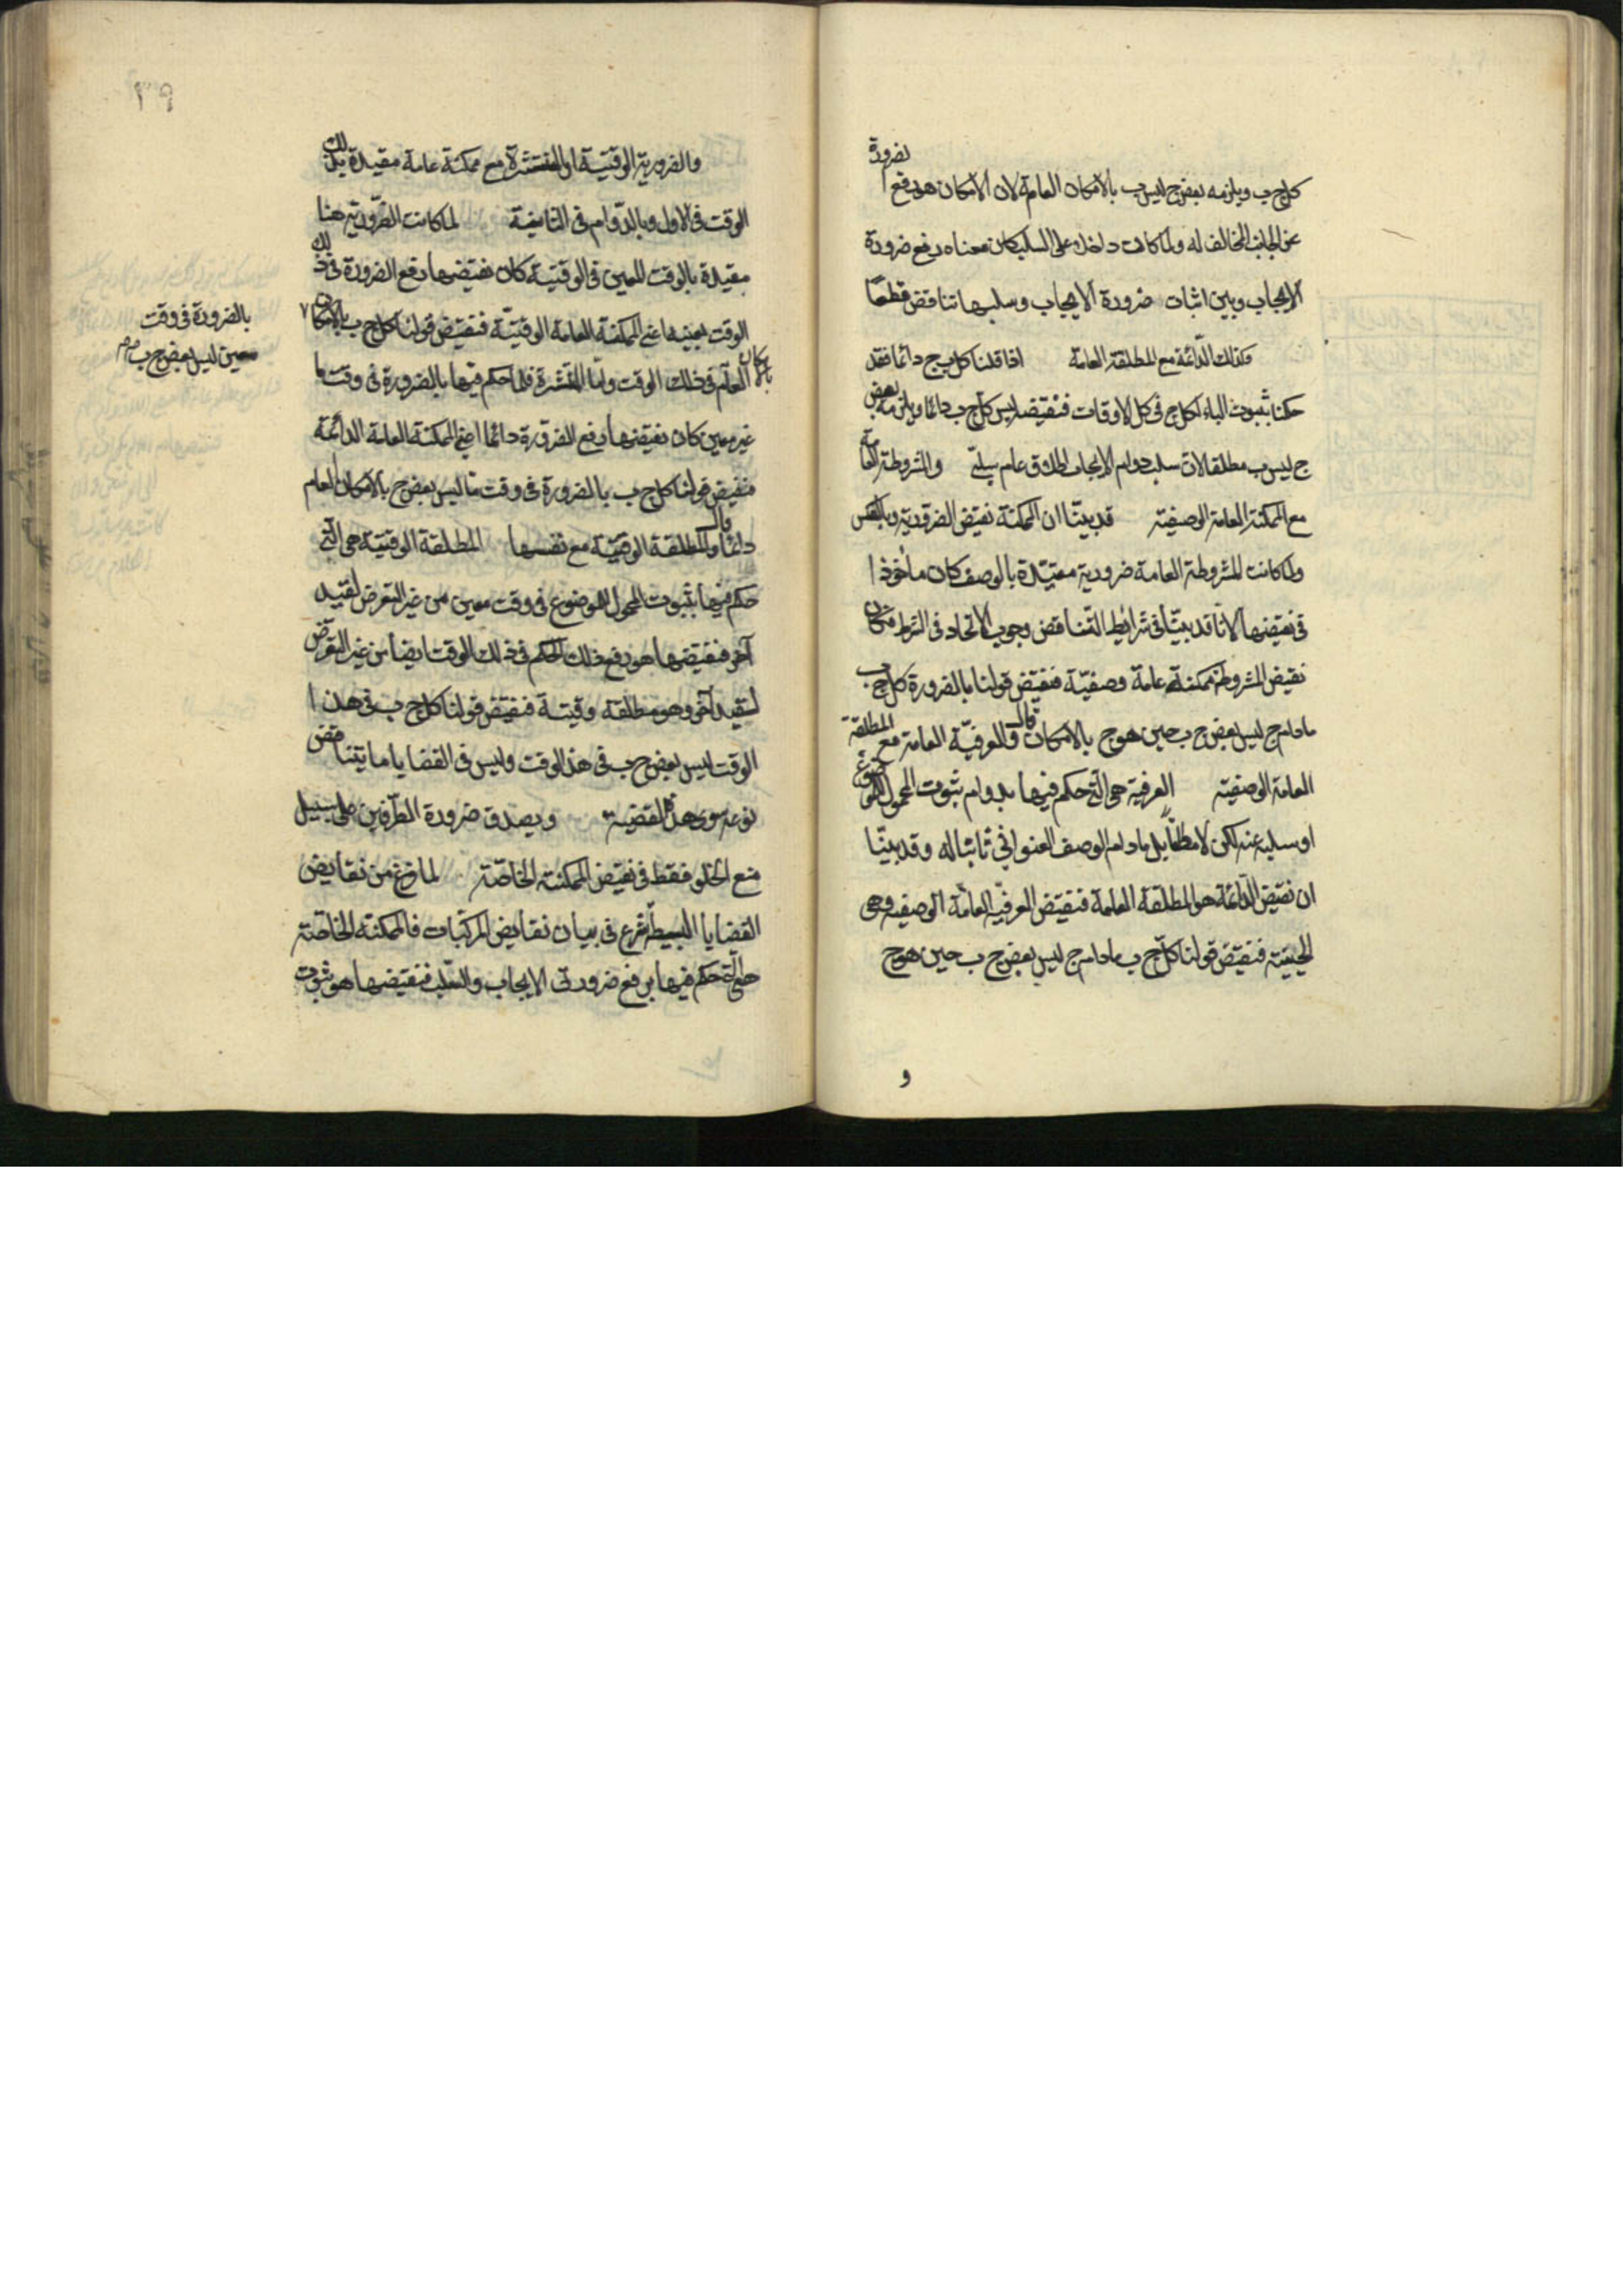 كل ج ب ويلزمه بعض ج ليس ب بالامكان العامة لان الامكان هو رفع لضرورة
عن الجانب المخالف له ولما كانت داخلة على السلب كان معناه رفع ضرورة
الايجاب وبين اثبات ضرورة الايجاب وسلبها تناقض قطعا
وكذلك الدائمة مع المطلقة العامة اذا قلنا كل ب ج دائما فقد
حكمنا بثبوت الباء لكل ج فى كل الاوقات فنقيضه ليس كل ج ب دائما ويلزمه بعض
ج ليس ب مطلقا لان سلب دوام الايجاب اطلاق عام سلبى والمشروطة العامة
مع الممكنة العامة الوصفية قد بينا ان الممكنة نقيض الضرورية وبالعكس
ولما كانت المشروطة العامة ضرورية مقيدة بالوصف كان ماخوذا
فى نقيضها لانا قد بينا فى شرايط التناقض وجوب الاتحاد فى الشرط فكان
نقيض المشروطة ممكنة عامة وصفية فنقيض قولنا بالضرورة كل ج ب
مادام ج ليس بعض ج ب حين هو ج بالامكان قال والعرفية العامة مع المطلقة
العامة الوصفية العرفية هى التى حكم فيها بدوام ثبوت المحمول للموضوع
او سلبه عنه لكن لا مطلقا بل مادام الوصف العنوانى ثابتا له وقد بينا
ان نقيض الدائمة هو المطلقة العامة فنقيض العرفية العامة الوصفية وهى
الحينية فنقيض قولنا كل ج ب مادام ج ليس بعض ج ب حين هو ج
و
٢٩
والضرورية الوقتية او المنتشرة مع ممكنة عامة مقيدة بذلك
الوقت فى الاول وبالدوام فى الثانية لما كانت الضرورية هنا
مقيدة بالوقت المعين فى الوقتية كان نقيضها رفع الضرورة فى ذلك
الوقت بعينها اعنى الممكنة العامة الوقتية فنقيض قولنا كل ج ب بالامكان
العام فى ذلك الوقت واما المنتشرة فلما حكم فيها بالضرورة فى وقت ما
بالامكان
غير معين كان نقيضها رفع الضرورة دائما اعنى الممكنة العامة الدائمة
فنقيض قولنا كل ج ب بالضرورة فى وقت ما ليس بعض ج بالامكان العام
دائما قال والمطلقة الوقتية مع نفسها المطلقة الوقتية هى التى
حكم فيها بثبوت المحمول للموضوع فى وقت معين من غير التعرض لقيد
آخر فنقيضها هو رفع ذلك الحكم فى ذلك الوقت ايضا من غير التعرض
لقيد آخر وهو مطلقة وقتية فنقيض قولنا كل ج ب فى هذا
الوقت ليس بعض ج ب فى هذا الوقت وليس فى القضايا ما يتناقض
نوعه سوى هذه القضية ويصدق ضرورة الطرفين على سبيل
منع الخلو فقط فى نقيض الممكنة الخاصة لما فرغ من نقايض
القضايا البسيطة شرع فى بيان نقايض المركبات فالممكنة الخاصة
هى التى حكم فيها برفع ضرورتى الايجاب والسلب فنقيضها هو ثبوت
بالضرورة فى وقت
معين ليس بعض ج ب